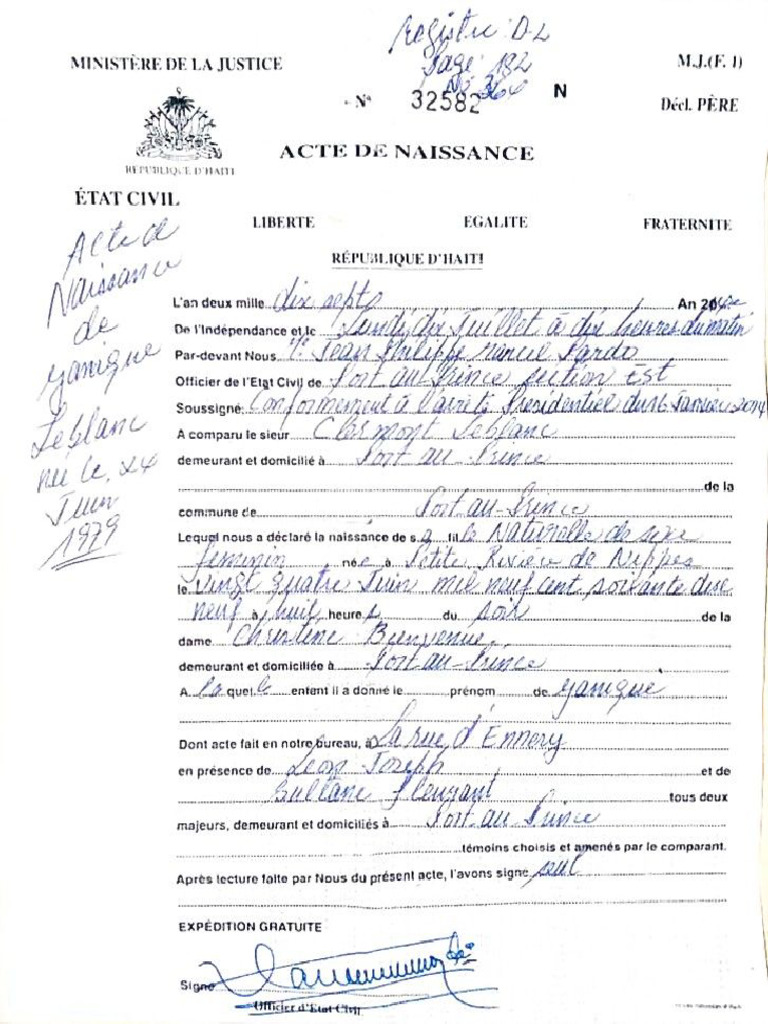 Registre D-2
Page 182
No 364
MINISTÈRE DE LA JUSTICE
M.J.(F. 1)
N° 32582 N
Décl. PÈRE
RÉPUBLIQUE D'HAITI
ACTE DE NAISSANCE
ÉTAT CIVIL
LIBERTE EGALITE FRATERNITE
RÉPUBLIQUE D'HAITI
Acte de
Naissance
de
Yanique
Leblanc
née le, 24
Juin
1979
L'an deux mille dix sept An 214e
De l'Indépendance et le Lundi dix Juillet à dix heures du matin
Par-devant Nous Me Jean Philippe Marcel Pardo
Officier de l'Etat Civil de Port au-Prince section Est
Soussigné: Conformement à l'arrêté Présidentiel du 16 Janvier 2014
À comparu le sieur Clermont Leblanc
demeurant et domicilié à Port au-Prince
de la
commune de Port au-Prince
Lequel nous a déclaré la naissance de s a fille Naturelle de sexe
féminin née à Petite Rivière de Nippes
le vingt quatre Juin mil neuf cent soixante dix
neuf à huit heures du soir de la
dame Christine Bienvenue,
demeurant et domiciliée à Port au-Prince
A la quelle enfant il a donné le prénom de Yanique
Dont acte fait en notre bureau, à La rue d'Ennery
en présence de Léon Joseph et de
Fleurant tous deux
majeurs, demeurant et domiciliés à Port au Prince
témoins choisis et amenés par le comparant.
Après lecture faite par Nous du présent acte, l'avons signé seul
EXPÉDITION GRATUITE
Signé
Officier d'Etat Civil